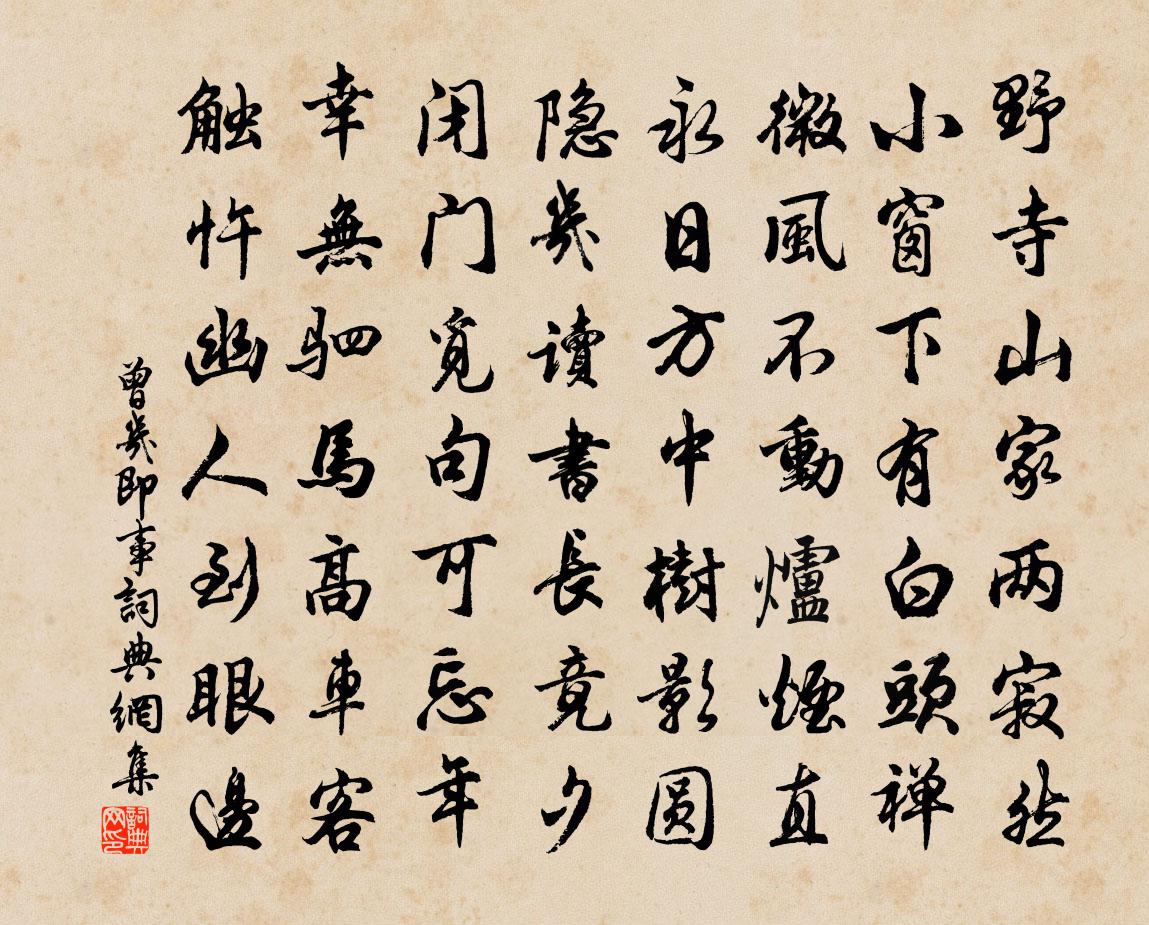 野寺山家两寂然
小窗下有白头禅
微風不動爐煙直
永日方中樹影圆
隐幾讀書長竟夕
闭门觅句可忘年
幸無驷馬高車客
触忤幽人到眼邊
曾幾即事詞典網集
詞典网印